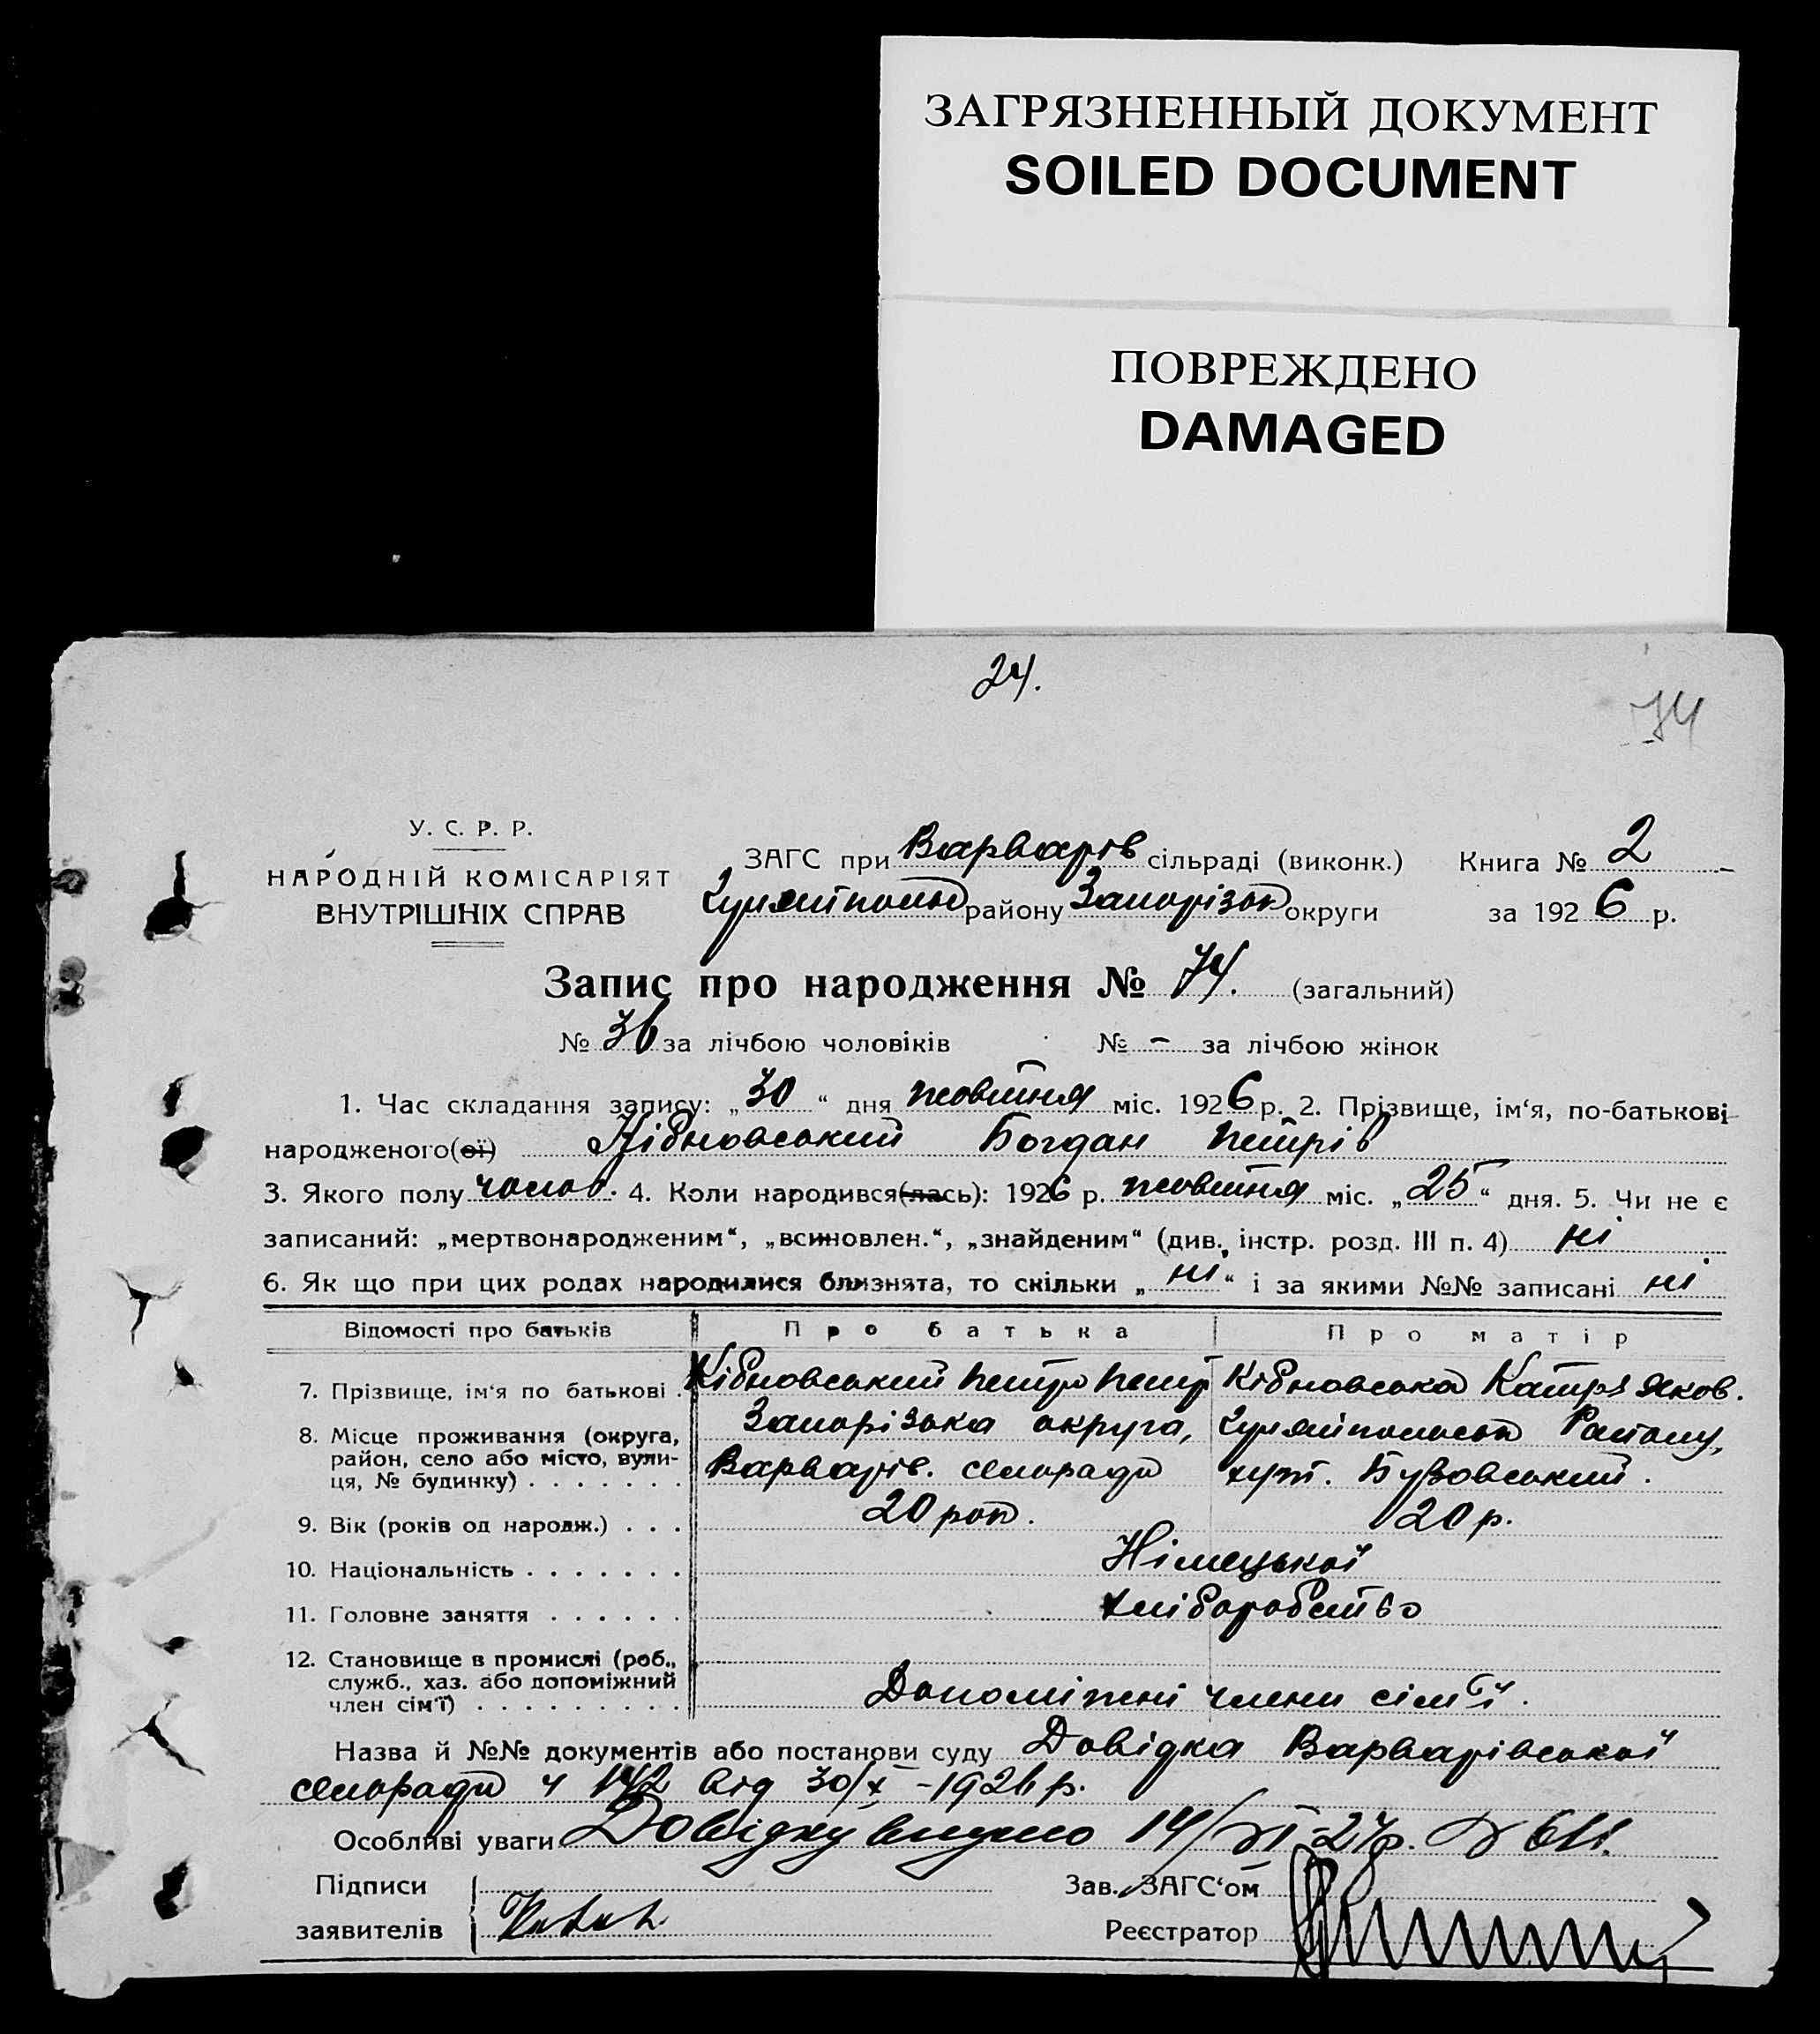 ЗАГРЯЗНЕННЫЙ ДОКУМЕНТ
SOILED DOCUMENT
ПОВРЕЖДЕНО
DAMAGED
24.
74
У. С. Р. Р.
НАРОДНІЙ КОМІСАРІЯТ
ВНУТРІШНІХ СПРАВ
ЗАГС при Варварів сільраді (виконк.) Книга № 2
Гуляйпольс району Запорізьк округи за 1926 р.
Запис про народження № 74. (загальний)
№ 36 за лічбою чоловіків № - за лічбою жінок
1. Час складання запису: „30“ дня жовтня міс. 1926 р. 2. Прізвище, ім‘я, по-батькові
народженого(ої) Богдан Петрів
3. Якого полу чолов. 4. Коли народився(лась): 1926 р. жовтня міс. „25“ дня. 5. Чи не є
записаний: „мертвонародженим“, „всиновлен.“, „знайденим“ (див. інстр. розд. III п. 4) ні
6. Як що при цих родах народилися близнята, то скільки „ні“ і за якими №№ записані ні
Відомості про батьків Про батька Про матір
7. Прізвище, ім‘я по батькові . Петро Петр Катря Яков.
8. Місце проживання (округа, район, село або місто, вулиця, № будинку) . . . . . . . Запорізька округа, Району,
Варварів. сельради хут.
9. Вік (років од народж.) . . . 20 рок. 20 р.
10. Національність . . . . . . . Німецької
11. Головне заняття . . . . . . хліборобство
12. Становище в промислі (роб., служб., хаз. або допоміжний член сім‘ї) . . . . . . . . . Допоміжні члени сім'ї.
Назва й №№ документів або постанови суду Довідка Варварівської
сельради ч 142 від 30/X-1926 р.
Особливі уваги Довідку видано 14/VI-27р.
Підписи
заявителів
Зав. ЗАГС‘ом
Реєстратор